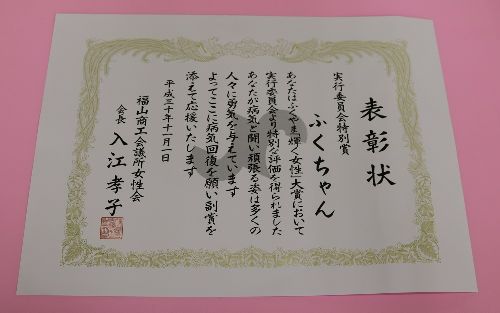 表彰状
実行委員会特別賞
ふくちゃん
あなたはふくやま「輝く女性」大賞において
実行委員会より特別な評価を得られました
あなたが病気と闘い頑張る姿は多くの
人々に勇気を与えています
よってここに病気回復を願い副賞を
添えて応援いたします
平成三十年十一月一日
福山商工会議所女性会
会長 入江孝子